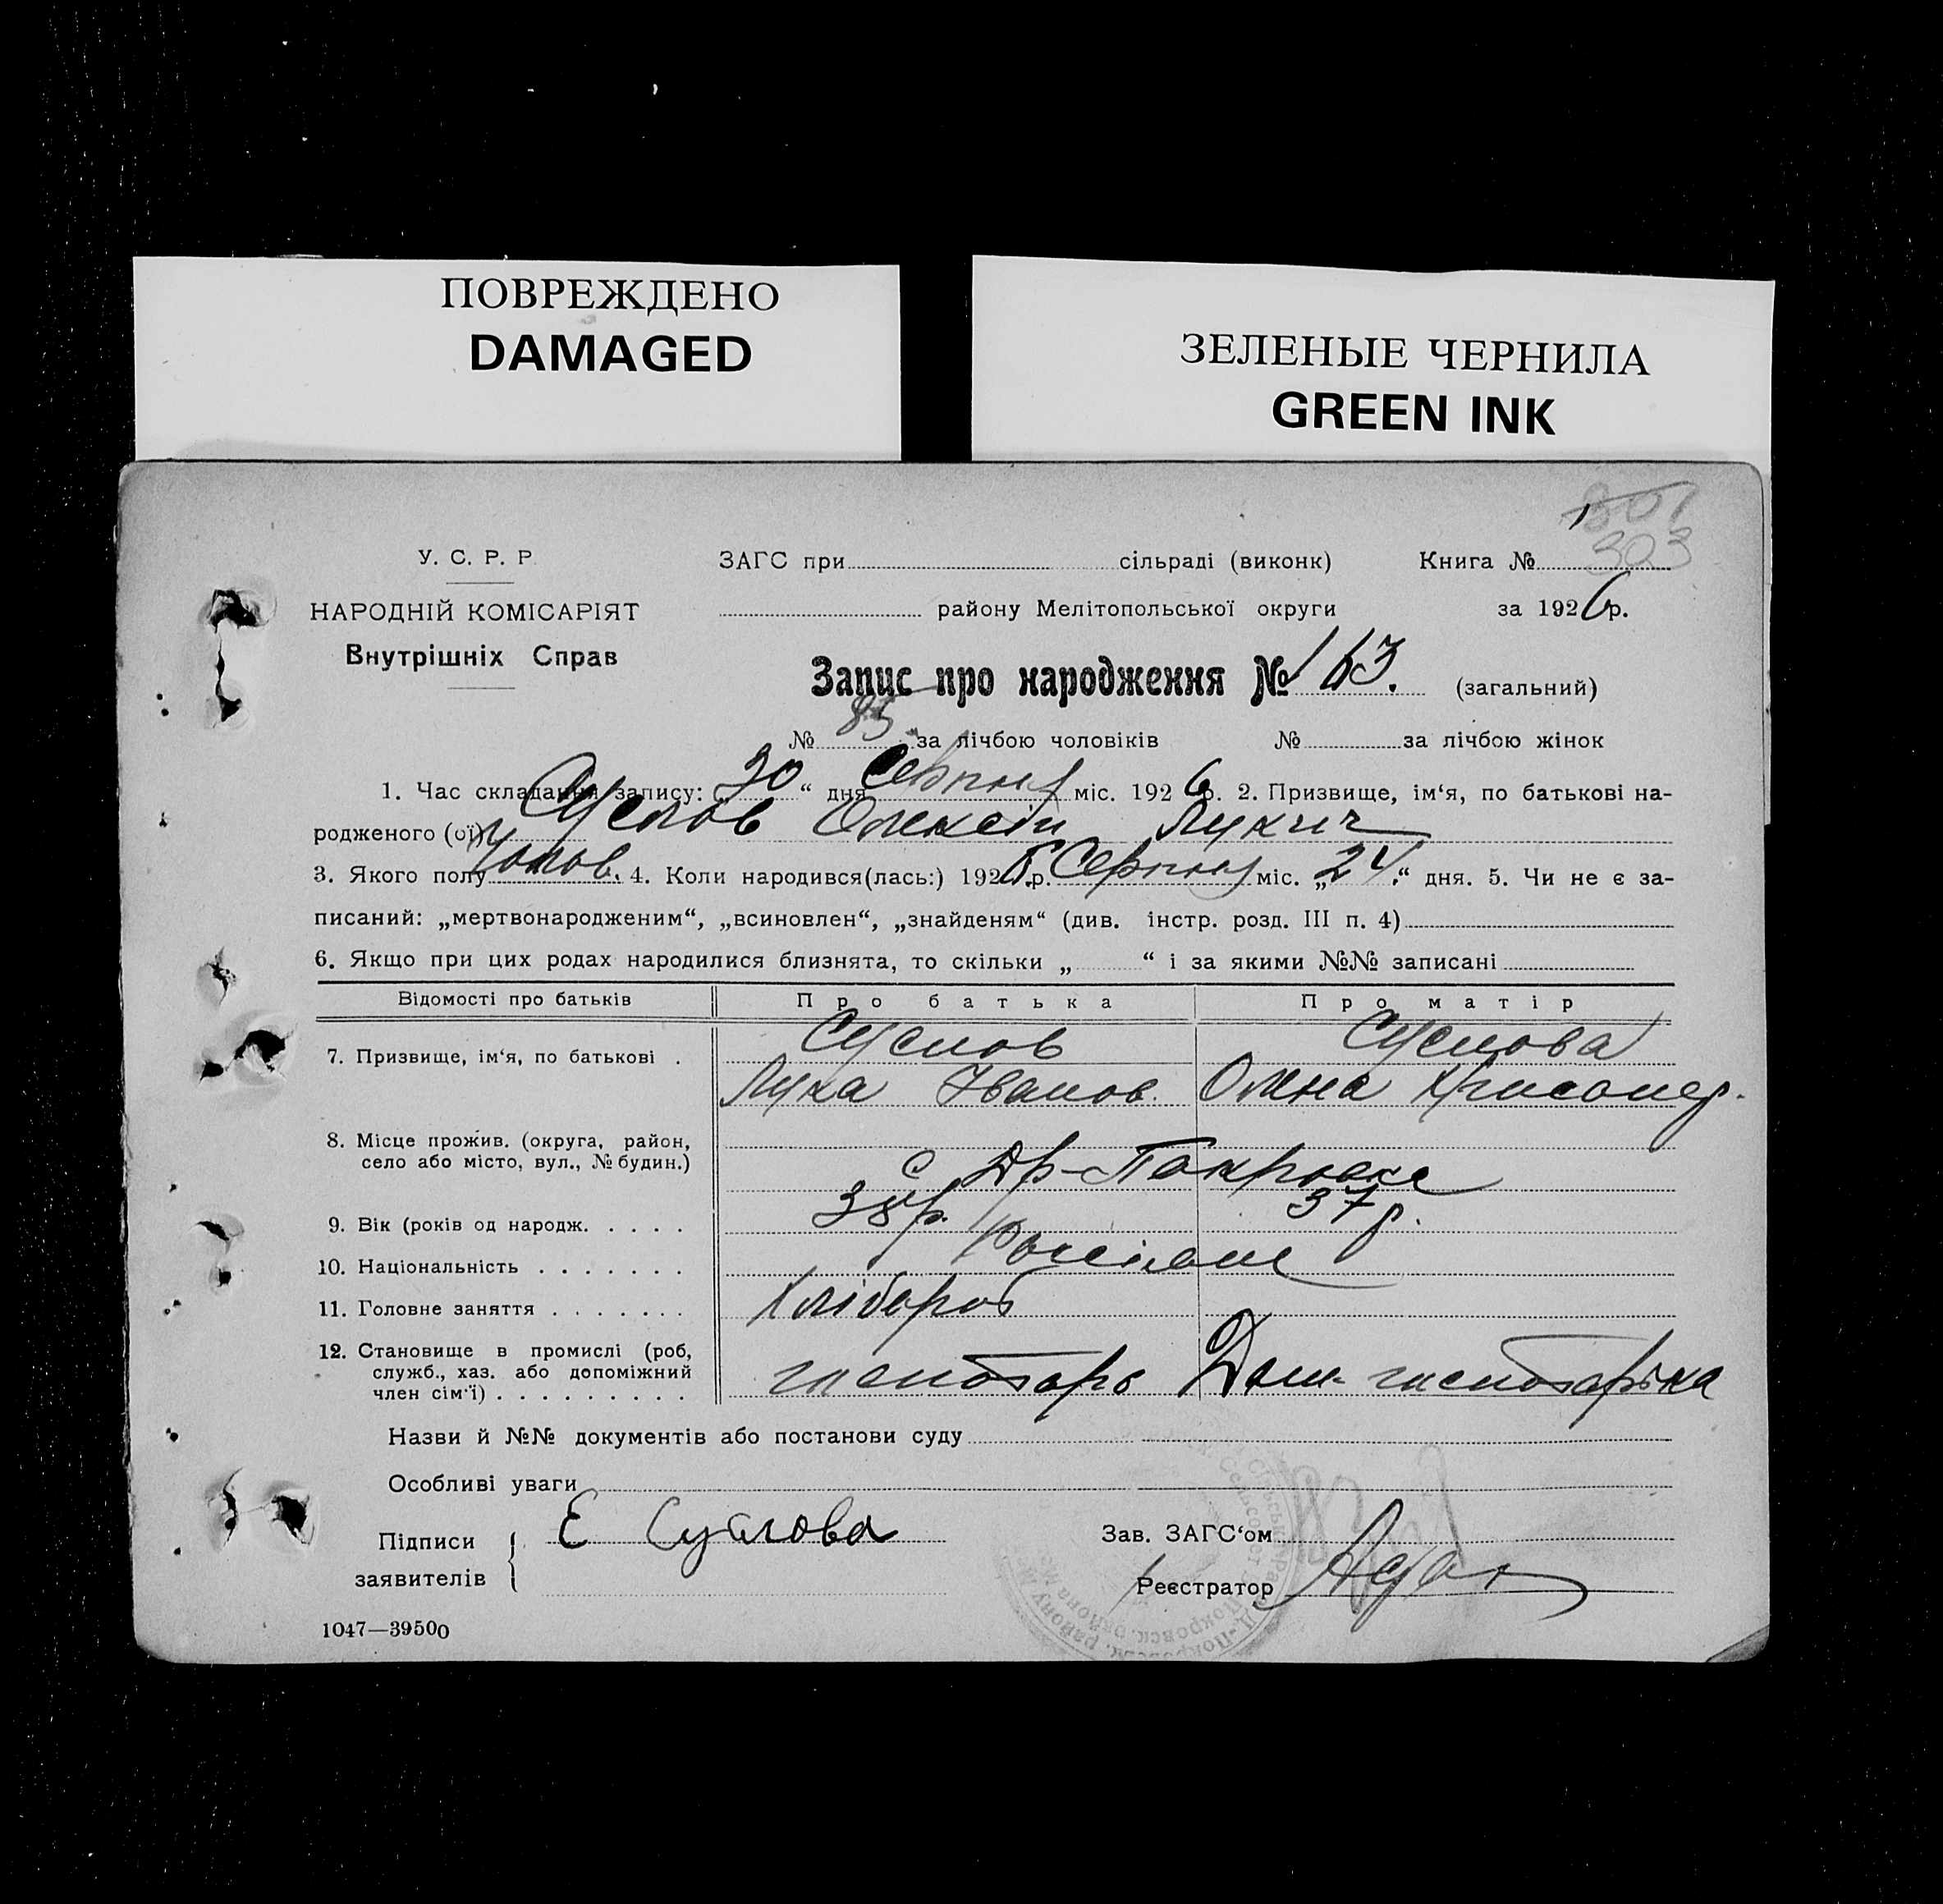 ПОВРЕЖДЕНО
DAMAGED
ЗЕЛЕНЫЕ ЧЕРНИЛА
GREEN INK
303
У. С. Р. Р ЗАГС при сільраді (виконк) Книга №
НАРОДНІЙ КОМІСАРІЯТ району Мелітопольської округи за 1926 р.
Внутрішніх Справ
Запис про народження № 163. (загальний)
№ 85 за лічбою чоловіків № за лічбою жінок
1. Час складання запису: „30“ дня Серпня міс. 1926 р. 2. Призвище, ім‘я, по батькові на-
родженого (ої) Суслов Олексій Лукич
3. Якого полу Чолов. 4. Коли народився(лась:) 1926 р. Серпня міс. „24“ дня. 5. Чи не є за-
писаний: „мертвонародженим“, „всиновлен“, „знайденям“ (див. інстр. розд. III п. 4)
6. Якщо при цих родах народилися близнята, то скільки „ “ і за якими №№ записані
Відомості про батьків Про батька Про матір
7. Призвище, ім‘я, по батькові . Суслов Суслова
Лука Іванов. Олена
8. Місце прожив. (округа, район,
село або місто, вул., № будин.) с Др-Покровка
9. Вік (років од народж. . . . . 38 р. 37 р.
10. Національність . . . . . . . Росіяне
11. Головне заняття . . . . . . . Хлібороб
12. Становище в промислі (роб,
служб., хаз. або допоміжний
член сім‘ї) . . . . . . . . . господарь Дом. господарька
Назви й №№ документів або постанови суду
Особливі уваги
Підписи Е Суслова Зав. ЗАГС‘ом
заявителів Реєстратор
1047—39500